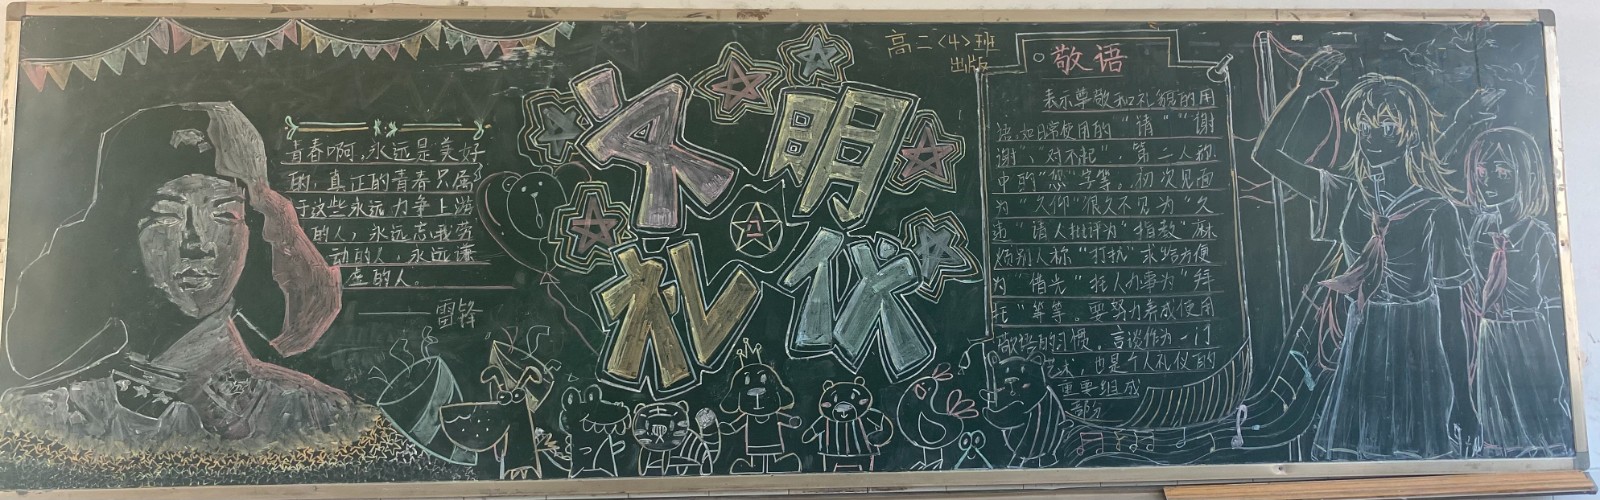 高二<4>班
出版
文明
礼仪
青春啊,永远是美好
的,真正的青春只属
于这些永远力争上游
的人,永远忘我劳
动的人,永远谦
虚的人。
——雷锋
敬语
表示尊敬和礼貌的用
语,如日常使用的“请”“谢
谢”,“对不起”,第二人称
中的“您”字等。初次见面
为“久仰”很久不见为“久
违”请人批评为“指教”麻
烦别人称“打扰”求给方便
为“借光”托人办事为“拜
托”等等。要努力养成使用
敬语的习惯,言谈作为一门
艺术,也是个人礼仪的
重要组成
部分